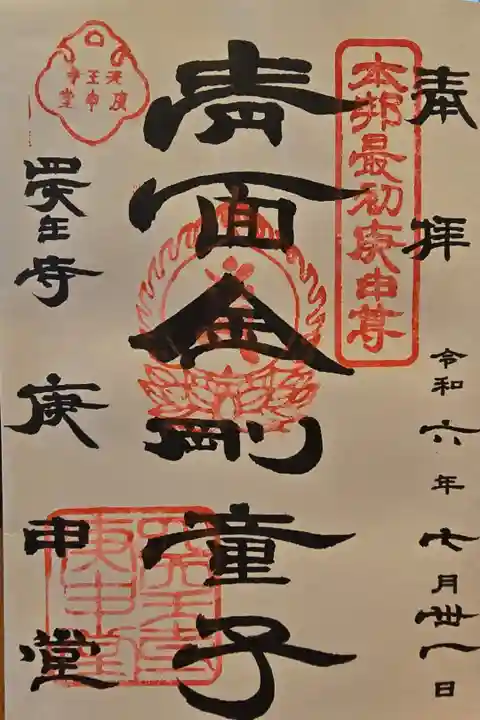 奉拝
令和六年七月卅一日
本邦最初庚申尊
青面金剛童子
四天王寺
庚申堂
天王寺
庚申堂
四天王寺
庚申堂